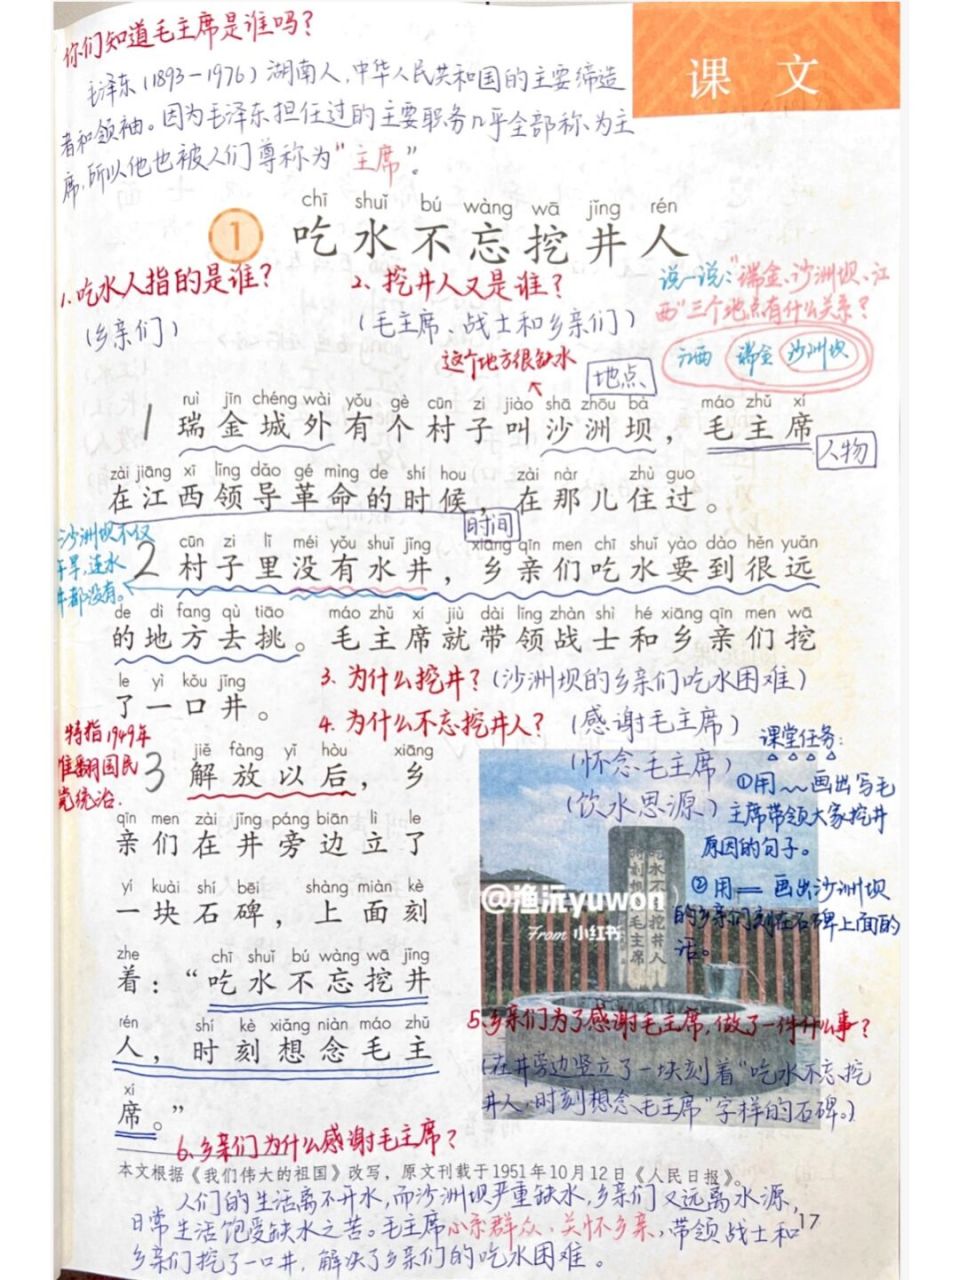 你们知道毛主席是谁吗？
毛泽东(1893－1976)湖南人,中华人民共和国的主要缔造
者和领袖。因为毛泽东担任过的主要职务几乎全部称为主
席,所以他也被人们尊称为“主席”。
课 文
chī shuǐ bú wàng wā jǐng rén
1 吃水不忘挖井人
1.吃水人指的是谁？
(乡亲们)
2. 挖井人又是谁？
(毛主席、战士和乡亲们)
说一说:“瑞金、沙洲坝、江
西”三个地点有什么关系？
江西 瑞金 沙洲坝
这个地方很缺水
地点
ruì jīn chéng wài yǒu gè cūn zi jiào shā zhōu bà máo zhǔ xí
1 瑞金城外有个村子叫沙洲坝，毛主席
人物
zài jiāng xī lǐng dǎo gé mìng de shí hou zài nàr zhù guo
在江西领导革命的时候，在那儿住过。
时间
沙洲坝不仅
干旱,连水
井都没有。
cūn zi lǐ méi yǒu shuǐ jǐng xiāng qīn men chī shuǐ yào dào hěn yuǎn
2 村子里没有水井，乡亲们吃水要到很远
de dì fang qù tiāo máo zhǔ xí jiù dài lǐng zhàn shì hé xiāng qīn men wā
的地方去挑。毛主席就带领战士和乡亲们挖
le yì kǒu jǐng
了一口井。
3. 为什么挖井？(沙洲坝的乡亲们吃水困难)
4. 为什么不忘挖井人？(感谢毛主席)
(怀念毛主席)
(饮水思源)
特指1949年
推翻国民
党统治.
jiě fàng yǐ hòu xiāng
3 解放以后，乡
qīn men zài jǐng páng biān lì le
亲们在井旁边立了
yí kuài shí bēi shàng miàn kè
一块石碑，上面刻
zhe chī shuǐ bú wàng wā jǐng
着：“吃水不忘挖井
rén shí kè xiǎng niàn máo zhǔ
人，时刻想念毛主
xí
席。”
课堂任务:
①用﹏画出写毛
主席带领大家挖井
原因的句子。
②用＝画出沙洲坝
的乡亲们刻在石碑上面的
话。
吃水不忘挖井人
时刻想念毛主席
@渔沅yuwon
From 小红书
5.乡亲们为了感谢毛主席,做了一件什么事？
(在井旁边竖立了一块刻着“吃水不忘挖
井人,时刻想念毛主席”字样的石碑。)
6.乡亲们为什么感谢毛主席？
本文根据《我们伟大的祖国》改写，原文刊载于1951年10月12日《人民日报》。
人们的生活离不开水,而沙洲坝严重缺水,乡亲们又远离水源,
日常生活饱受缺水之苦。毛主席心系群众、关怀乡亲,带领战士和
乡亲们挖了一口井,解决了乡亲们的吃水困难。
17